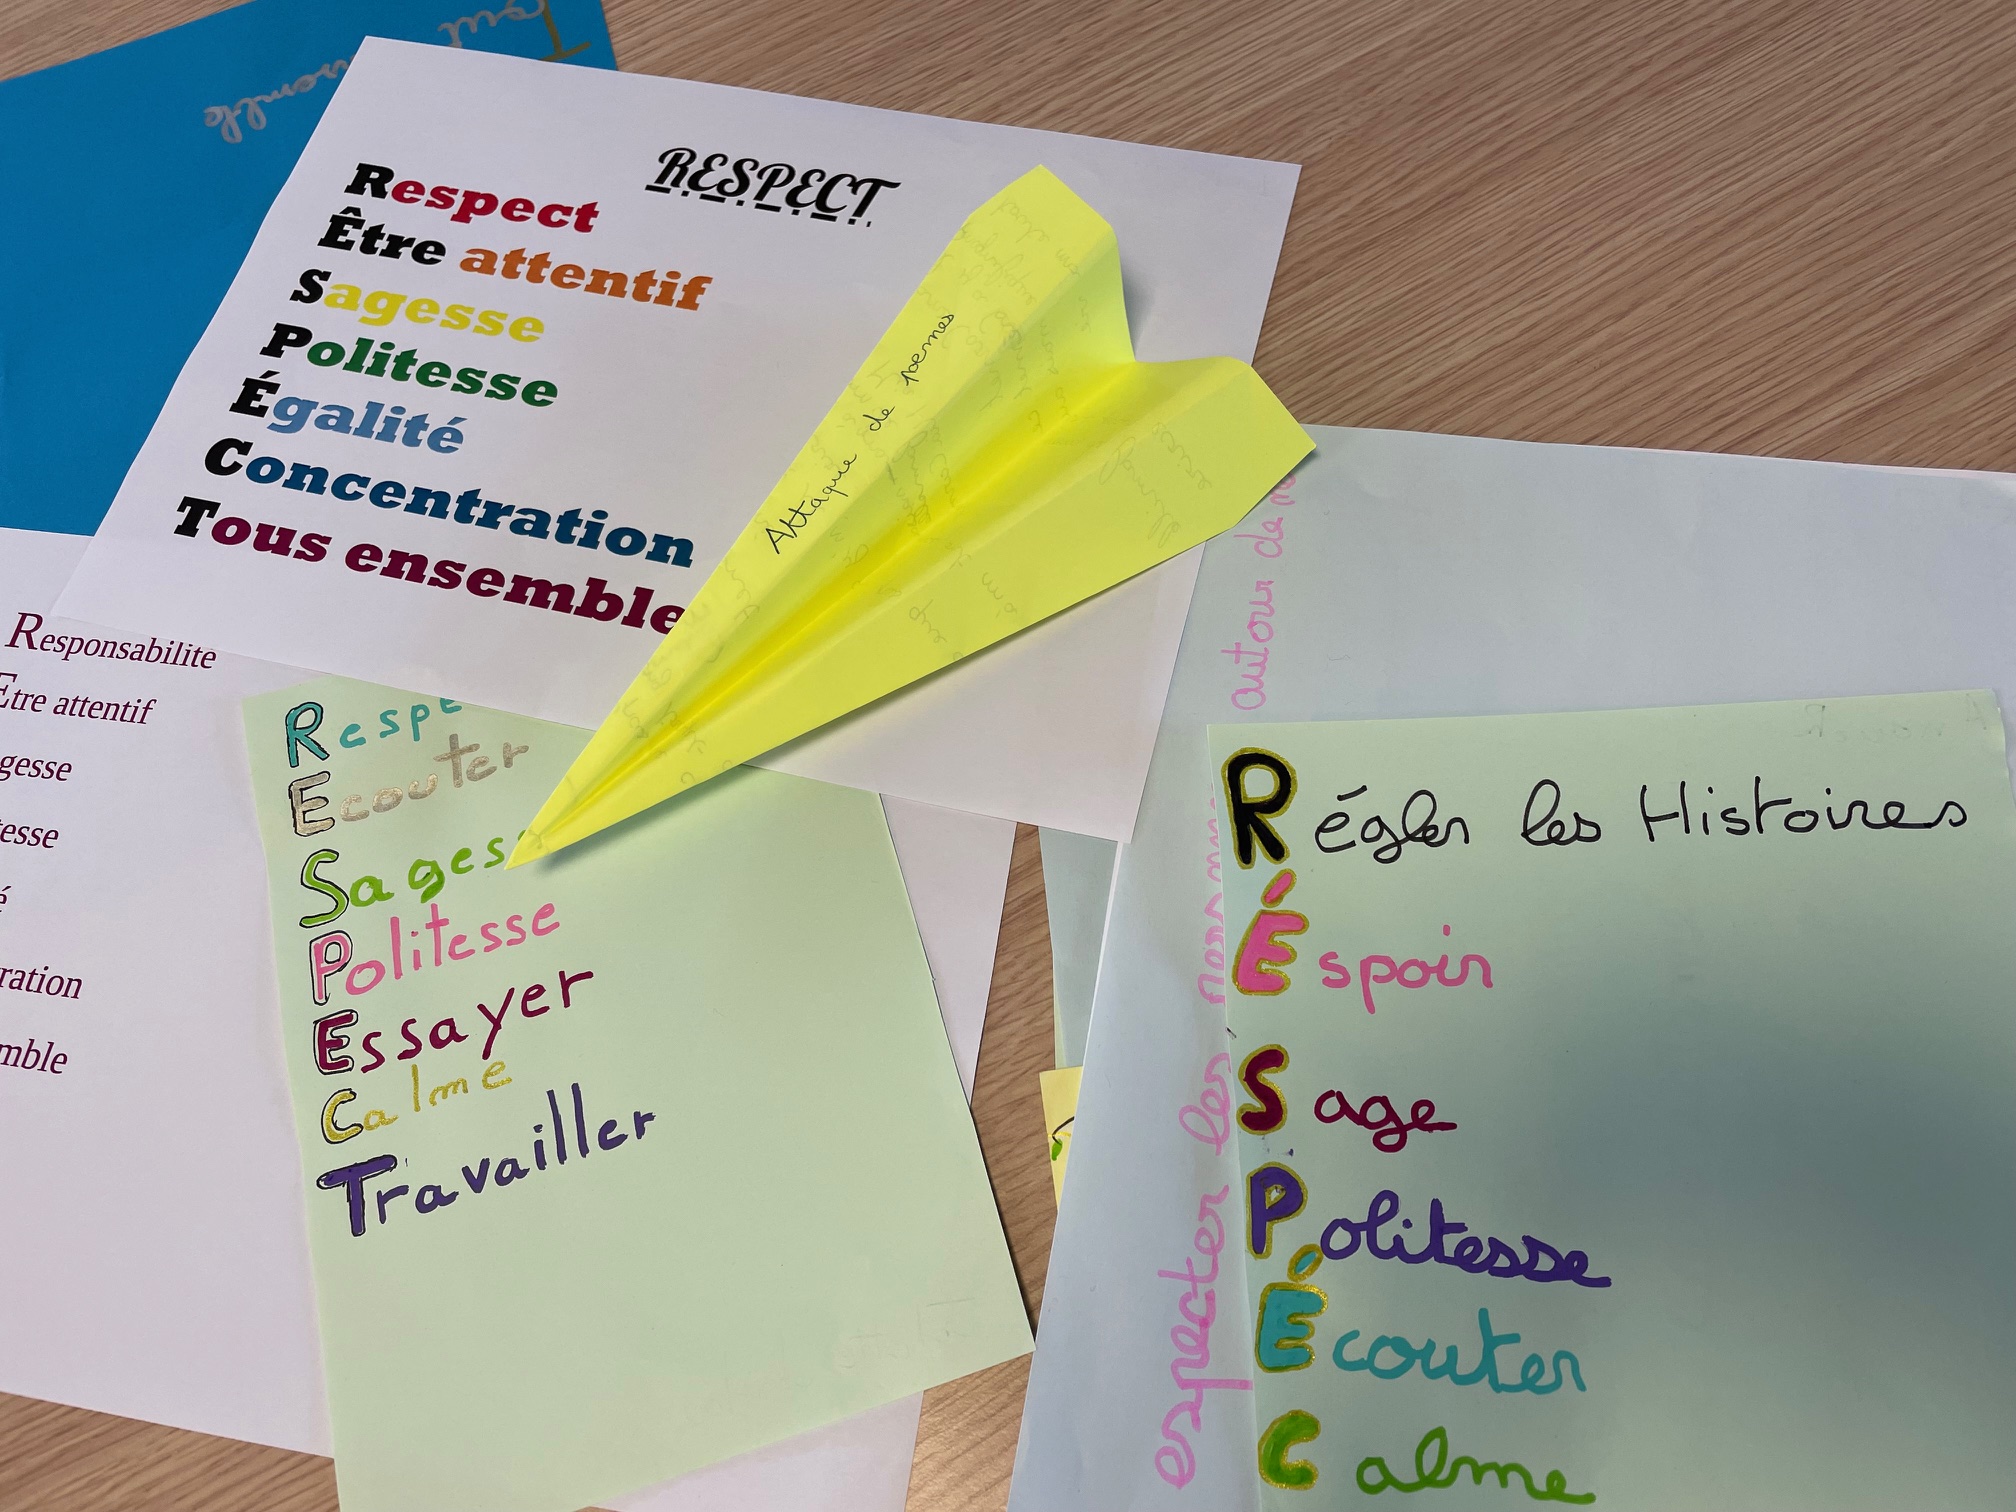 Tout
RESPECT
Respect
Être attentif
Sagesse
Politesse
Égalité
Concentration
Tous ensemble
Attaque de poèmes
Responsabilité
Etre attentif
gesse
tesse
é
ration
mble
Respe
Ecouter
Sagess
Politesse
Essayer
Calme
Travailler
especter les personne autour de n
Régler les Histoires
Éspoir
Sage
Politesse
Écouter
Calme